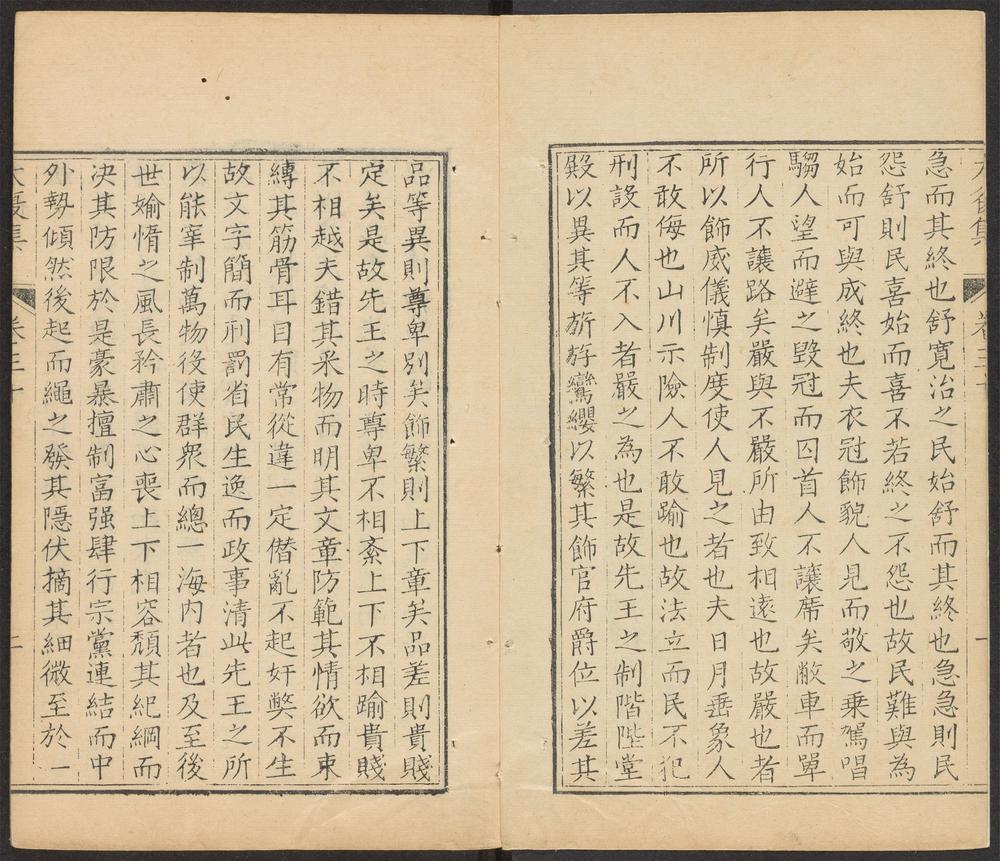 急而其終也舒寛治之民始舒而其終也急急則民
怨舒則民喜始而喜不若終之不怨也故民難與為
始而可與成終也夫衣冠飾貌人見而敬之乗駕唱
騶人望而避之毀冠而囚首人不讓席矣敝車而單
行人不讓路矣嚴與不嚴所由致相遠也故嚴也者
所以飾威儀慎制度使人見之者也夫日月垂象人
不敢侮也山川示險人不敢踰也故法立而民不犯
刑設而人不入者嚴之為也是故先王之制階陛堂
殿以異其等旂斿鸞纓以繁其飾官府爵位以差其
品等異則尊卑別矣飾繁則上下章矣品差則貴賤
定矣是故先王之時尊卑不相紊上下不相踰貴賤
不相越夫錯其采物而明其文章防範其情欲而束
縛其筋骨耳目有常從違一定僣亂不起奸弊不生
故文字簡而刑罰省民生逸而政事清此先王之所
以能宰制萬物役使群衆而總一海内者也及至後
世媮惰之風長矜肅之心喪上下相容頽其紀綱而
决其防限於是豪暴擅制富强肆行宗黨連結而中
外勢傾然後起而繩之發其隱伏摘其細微至於一
卷三十
二